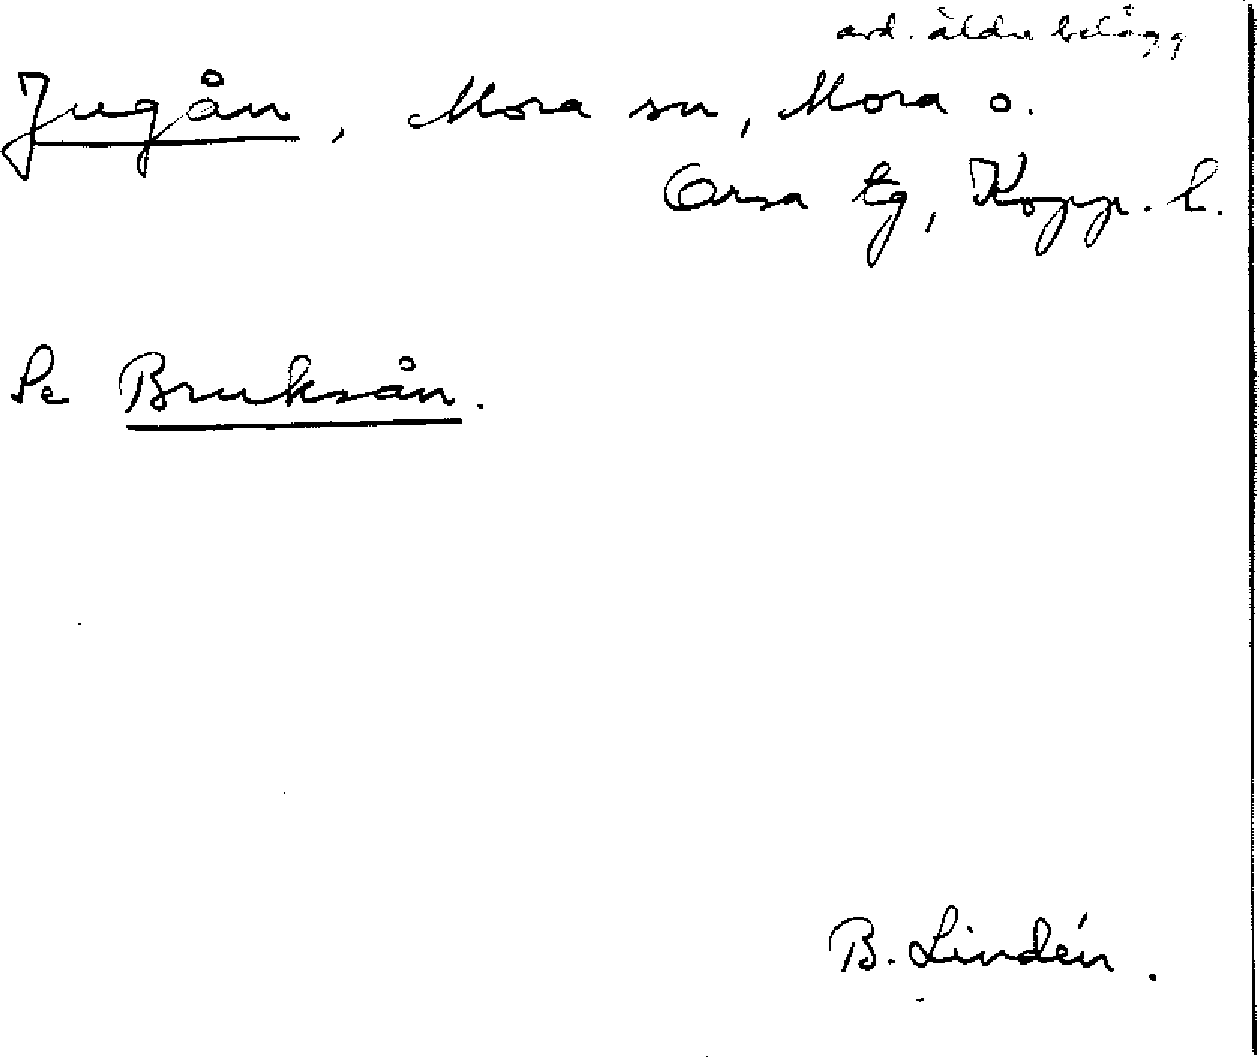 avd. äldre belägg
Jugån, Mora sn, Mora o.
Orsa tg, Kopp. l.
Se Bruksån.
B. Lindén.